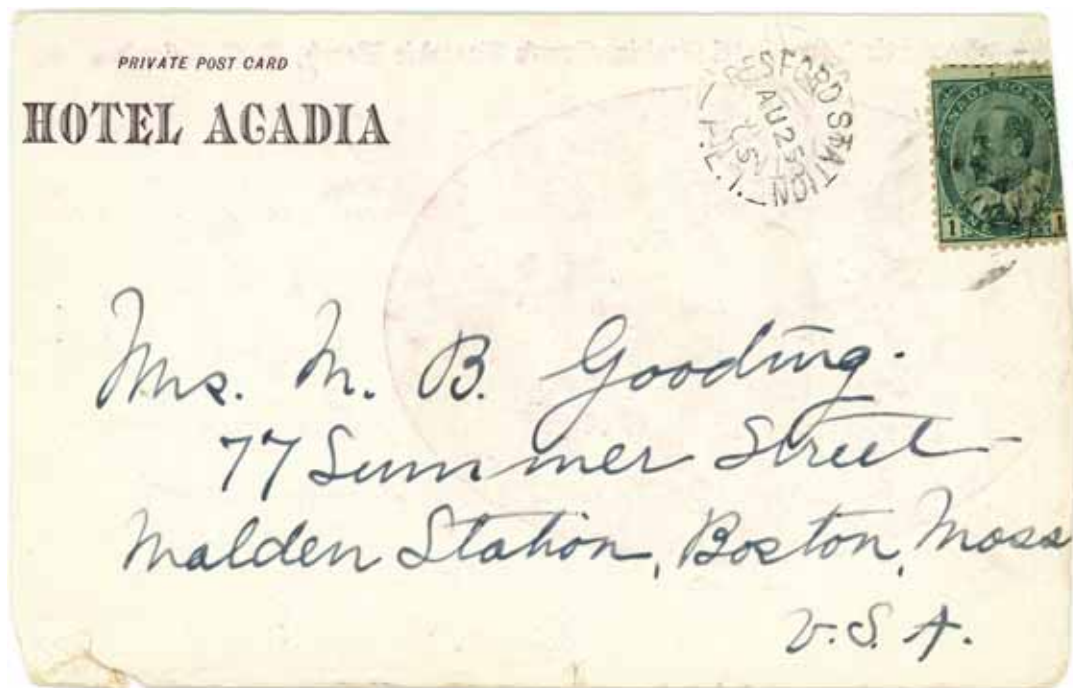 PRIVATE POST CARD
HOTEL ACADIA
STATION
AU 25
P.E.I.
CANADA POSTAGE
1 1
Mrs. M. B. Gooding.
77 Summer Street
Malden Station, Boston, Mass
U.S.A.